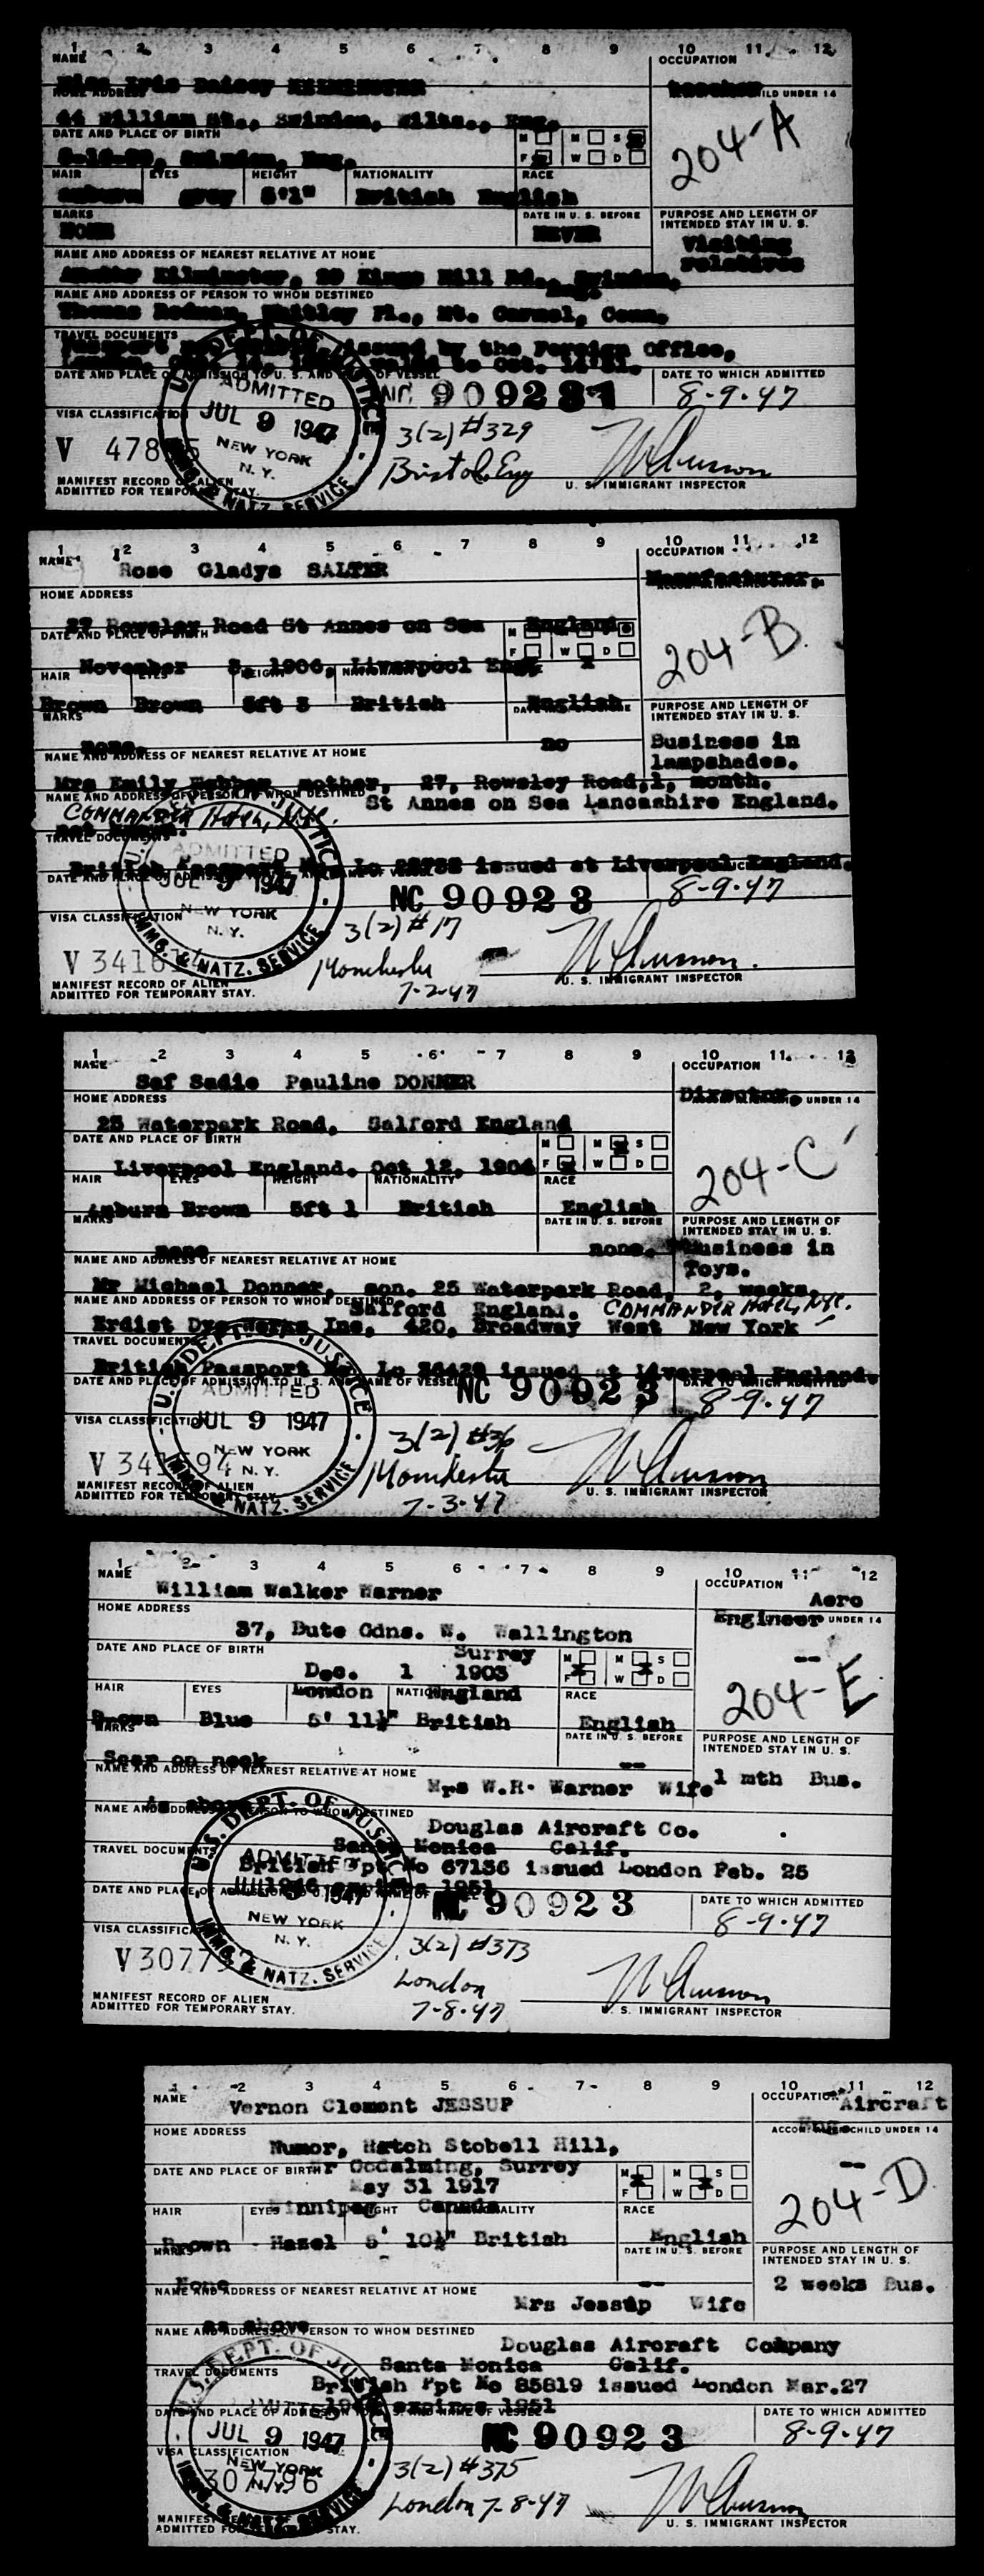 1 2 3 4 5 6 7 8 9 10 11 12
NAME OCCUPATION
Miss Iris Daisey KILMINSTER teacher
HOME ADDRESS CHILD UNDER 14
44 William St., Swindon, Wilts., Eng.
204-A
DATE AND PLACE OF BIRTH M M S
Swindon, Eng. F W D
HAIR EYES HEIGHT NATIONALITY RACE
auburn grey 5'1" British English
MARKS DATE IN U. S. BEFORE PURPOSE AND LENGTH OF INTENDED STAY IN U. S.
NONE NEVER Visiting relatives
NAME AND ADDRESS OF NEAREST RELATIVE AT HOME
Kilminster, Kings Hill Rd., Swindon,
NAME AND ADDRESS OF PERSON TO WHOM DESTINED Eng.
Thomas Redman, Whitley Pl., Mt. Carmel, Conn.
TRAVEL DOCUMENTS
issued by the Foreign Office,
DATE AND PLACE OF ADMISSION TO U. S. AND NAME OF VESSEL DATE TO WHICH ADMITTED
U. S. DEPT. OF JUSTICE ADMITTED JUL 9 1947 NEW YORK N. Y. IMMG. & NATZ. SERVICE
NC 90923 8-9-47
VISA CLASSIFICATION 3(2) #329
V 478 Bristol, Eng
MANIFEST RECORD OF ALIEN
ADMITTED FOR TEMPORARY STAY. U. S. IMMIGRANT INSPECTOR
1 2 3 4 5 6 7 8 9 10 11 12
NAME OCCUPATION
Rose Gladys SALTER Manufacturer.
HOME ADDRESS
27 Rowsley Road St Annes on Sea England.
204-B
DATE AND PLACE OF BIRTH M M S
November 8, 1906, Liverpool Eng. F W D
HAIR EYES HEIGHT NATIONALITY
Brown Brown 5ft 3 British English
MARKS PURPOSE AND LENGTH OF INTENDED STAY IN U. S.
none. no Business in lampshades.
NAME AND ADDRESS OF NEAREST RELATIVE AT HOME
Mrs Emily Webber mother, 27, Rowsley Road, 1, month.
NAME AND ADDRESS OF PERSON TO WHOM DESTINED St Annes on Sea Lancashire England.
COMMANDER Hotel, NYC.
TRAVEL DOCUMENTS
British Passport No Lo issued at Liverpool England.
U. S. DEPT. OF JUSTICE ADMITTED JUL 9 1947 NEW YORK N. Y. IMMG. & NATZ. SERVICE
NC 90923 8-9-47
VISA CLASSIFICATION 3(2) #17
V 3416 Manchester
7-2-47
MANIFEST RECORD OF ALIEN
ADMITTED FOR TEMPORARY STAY. U. S. IMMIGRANT INSPECTOR
1 2 3 4 5 6 7 8 9 10 11 12
NAME OCCUPATION
Sef Sadie Pauline DONNER Director.
HOME ADDRESS UNDER 14
25 Waterpark Road, Salford England
204-C
DATE AND PLACE OF BIRTH M M S
Liverpool England. Oct 12, 1904 F W D
HAIR EYES HEIGHT NATIONALITY RACE
Auburn Brown 5ft 1 British English
MARKS DATE IN U. S. BEFORE PURPOSE AND LENGTH OF INTENDED STAY IN U. S.
none none. Business in Toys.
NAME AND ADDRESS OF NEAREST RELATIVE AT HOME
Mr Michael Donner, son. 25 Waterpark Road, 2, weeks.
NAME AND ADDRESS OF PERSON TO WHOM DESTINED Salford England. COMMANDER Hotel, NYC.
Erdist Dye Works Inc, 420, Broadway West New York
TRAVEL DOCUMENTS
British Passport No Lo issued at Liverpool England.
DATE AND PLACE OF ADMISSION TO U. S. AND NAME OF VESSEL DATE TO WHICH ADMITTED
U. S. DEPT. OF JUSTICE ADMITTED JUL 9 1947 NEW YORK N. Y. IMMG. & NATZ. SERVICE
NC 90923 8-9-47
VISA CLASSIFICATION 3(2) #36
V 341 94 Manchester
7-3-47
MANIFEST RECORD OF ALIEN
ADMITTED FOR TEMPORARY STAY. U. S. IMMIGRANT INSPECTOR
1 2 3 4 5 6 7 8 9 10 11 12
NAME OCCUPATION
William Walker Warner Aero
HOME ADDRESS Engineer UNDER 14
37, Bute Gdns. W. Wallington
DATE AND PLACE OF BIRTH Surrey M M S --
Dec. 1 1903 F W D 204-E
HAIR EYES London NATIONALITY England RACE
Brown Blue 5' 11½" British English
MARKS DATE IN U. S. BEFORE PURPOSE AND LENGTH OF INTENDED STAY IN U. S.
Scar on neck --
NAME AND ADDRESS OF NEAREST RELATIVE AT HOME
Mrs W.R. Warner Wife 1 mth Bus.
As above
NAME AND ADDRESS OF PERSON TO WHOM DESTINED
Douglas Aircraft Co.
TRAVEL DOCUMENTS Santa Monica Calif.
British Ppt No 67136 issued London Feb. 25
1946 expires 1951
DATE AND PLACE OF ADMISSION TO U. S. AND NAME OF VESSEL DATE TO WHICH ADMITTED
U. S. DEPT. OF JUSTICE ADMITTED JUL 9 1947 NEW YORK N. Y. IMMG. & NATZ. SERVICE
NC 90923 8-9-47
VISA CLASSIFICATION 3(2) #373
V 3077 London
7-8-47
MANIFEST RECORD OF ALIEN
ADMITTED FOR TEMPORARY STAY. U. S. IMMIGRANT INSPECTOR
1 2 3 4 5 6 7 8 9 10 11 12
NAME OCCUPATION Aircraft
Vernon Clement JESSUP Eng.
HOME ADDRESS CHILD UNDER 14
Numor, Hatch Stobell Hill,
DATE AND PLACE OF BIRTH Nr Godalming, Surrey M M S --
May 31 1917 F W D 204-D
HAIR EYES Winnipeg HEIGHT Canada NATIONALITY RACE
Brown Hazel 5' 10½" British English
MARKS DATE IN U. S. BEFORE PURPOSE AND LENGTH OF INTENDED STAY IN U. S.
None -- 2 weeks Bus.
NAME AND ADDRESS OF NEAREST RELATIVE AT HOME
Mrs Jessup Wife
as above
NAME AND ADDRESS OF PERSON TO WHOM DESTINED
Douglas Aircraft Company
TRAVEL DOCUMENTS Santa Monica Calif.
British Ppt No 85819 issued London Mar.27
expires 1951
DATE AND PLACE OF ADMISSION TO U. S. AND NAME OF VESSEL DATE TO WHICH ADMITTED
U. S. DEPT. OF JUSTICE ADMITTED JUL 9 1947 NEW YORK N. Y. IMMG. & NATZ. SERVICE
NC 90923 8-9-47
VISA CLASSIFICATION 3(2) #375
307796 London 7-8-47
MANIFEST RECORD OF ALIEN
ADMITTED FOR TEMPORARY STAY. U. S. IMMIGRANT INSPECTOR